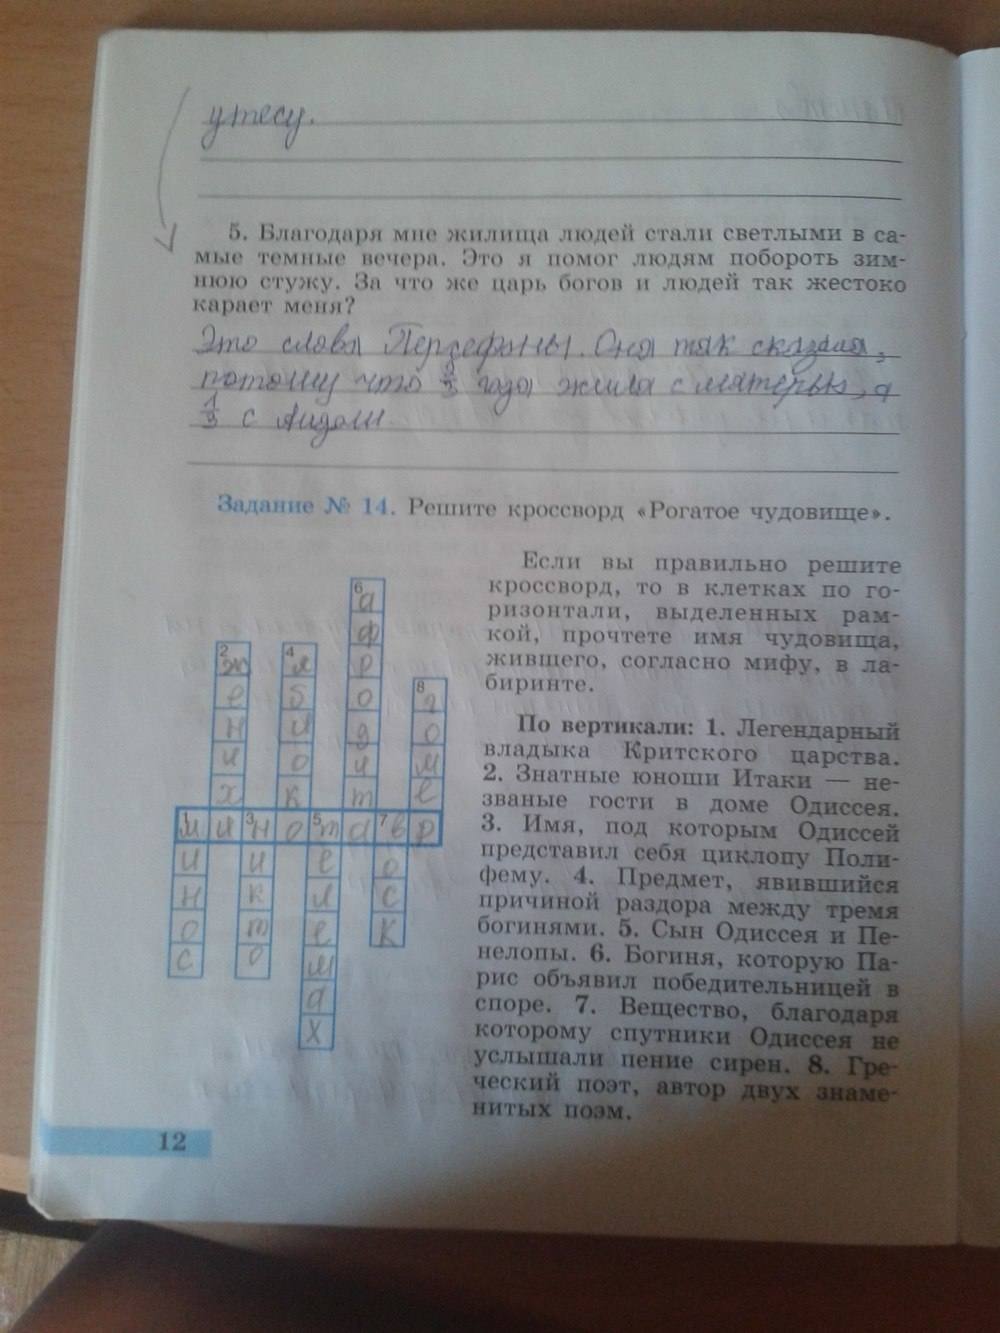 утесу.
5. Благодаря мне жилища людей стали светлыми в са-
мые темные вечера. Это я помог людям побороть зим-
нюю стужу. За что же царь богов и людей так жестоко
карает меня?
Это слова Персефоны. Она так сказала,
потому что 2/3 года жила с матерью, а
1/3 с Аидом
Задание № 14. Решите кроссворд «Рогатое чудовище».
Если вы правильно решите
кроссворд, то в клетках по го-
ризонтали, выделенных рам-
кой, прочтете имя чудовища,
жившего, согласно мифу, в ла-
биринте.
По вертикали: 1. Легендарный
владыка Критского царства.
2. Знатные юноши Итаки — не-
званые гости в доме Одиссея.
3. Имя, под которым Одиссей
представил себя циклопу Поли-
фему. 4. Предмет, явившийся
причиной раздора между тремя
богинями. 5. Сын Одиссея и Пе-
нелопы. 6. Богиня, которую Па-
рис объявил победительницей в
споре. 7. Вещество, благодаря
которому спутники Одиссея не
услышали пение сирен. 8. Гре-
ческий поэт, автор двух знаме-
нитых поэм.
6 а
ф
2 ж 4 я р
е б о 8 г
н л д о
и о и м
х к т е
1 м и 3 н о 5 т а 7 в р
и и е о
н к л с
о т е к
с о м
а
х
12